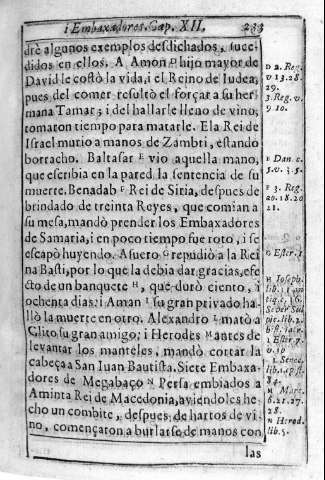 i Embaxadores. Cap. XII. 233
drè algunos exemplos desdichados, suce-
didos en ellos. A Amon D hijo mayor de
David le costò la vida, i el Reino de Iudea,
pues del comer resultò el forçar a su her-
mana Tamar; i del hallarle lleno de vino,
tomaron tiempo para matarle. Ela Rei de
Israel murio a manos de Zambri, estando
borracho. Baltasar E vio aquella mano,
que escribia en la pared la sentencia de su
muerte. Benadab F Rei de Siria, despues de
brindado de treinta Reyes, que comian a
su mesa, mandò prender los Embaxadores
de Samaria, i en poco tiempo fue roto, i se
escapò huyendo. Asuero G repudiò a la Rei
na Basti, por lo que la debia dar gracias, efe-
sto de un banquete H, que durò ciento, i
ochenta dias: i Aman I su gran privado ha-
llò la muerte en otro. Alexandro L matò a
Clito su gran amigo: i Herodes M antes de
levantar los manteles, mandò cortar la
cabeça a San Iuan Bautista. Siete Embaxa-
dores de Megabaço N Persa embiados a
Aminta Rei de Macedonia, aviendoles he-
cho un combite, despues de hartos de vi-
no, començaron a burlarse de manos con
las
D 2. Reg.
v 13.28.
29.
3. Reg. v.
9 10.
E Dan. c.
5. v. 3.5.
F 3. Reg.
20.18.20
21.
G Ester. 1
H Joseph.
lib. 11 an
tiq. c. 6.
Sever Sul
pic. lib. 2.
hist. sacr.
I Ester 7.
v. 10
L Senec.
lib. 1. epist.
84.
M Marc.
6.21.27.
28.
N Herod.
lib. 5.